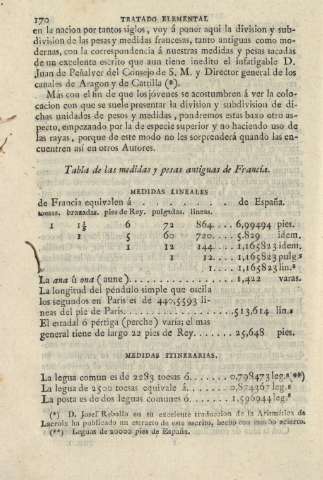 170 TRATADO ELEMENTAL
en la nacion por tantos siglos, voy á poner aqui la division y sub-
division de las pesas y medidas francesas, tanto antiguas como mo-
dernas, con la correspondencia á nuestras medidas y pesas sacadas
de un excelente escrito que aun tiene inedito el infatigable D.
Juan de Peñalver del Consejo de S. M. y Director general de los
canales de Aragon y de Castilla (*).
Más con el fin de que los jóvenes se acostumbren á ver la colo-
cacion con que se suele presentar la division y subdivision de di-
chas unidades de pesos y medidas, pondremos estas baxo otro as-
pecto, empezando por la de especie superior y no haciendo uso de
las rayas, porque de este modo no les sorprenderá quando las en-
cuentren asi en otros Autores.
Tabla de las medidas y pesas antiguas de Francia.
MEDIDAS LINEALES
de Francia equivalen á . . . . . . . . . de España.
toesas. brazadas. pies de Rey. pulgadas. lineas.
1 1½ 6 72 864 . . . 6,99494 pies.
1 5 60 720 . . . 5.829 idem.
1 12 144 . . . 1,165823 idem.
1 12 . . . 1,165823 pulg.s
1 . . . 1,165823 lin.s
La ana ú ona (aune) . . . . . . . . . 1,422 varas.
La longitud del péndulo simple que ocila
los segundos en Paris es de 440,5593 li-
neas del pie de Paris . . . . . . . . . 513,614 lin.s
El estadal ó pértiga (perche) varia; el mas
general tiene de largo 22 pies de Rey . . . . . 25,648 pies.
MEDIDAS ITINERARIAS.
La legua comun es de 2283 toesas ó . . . . . 0,798473 leg.s (**)
La legua de 2500 toesas equivale á . . . . . 0,874367 leg.s
La posta es de dos leguas comunes ó . . . . . 1,596944 leg.s
(*) D. Josef Rebollo en su excelente traduccion de la Aritmética de
Lacroix ha publicado un extracto de este escrito, hecho con mucho acierto.
(**) Leguas de 20000 pies de España.